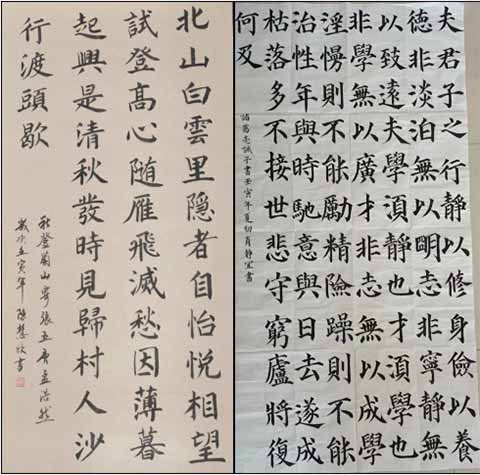 北山白雲里隐者自怡悦相望
試登高心随雁飛滅愁因薄暮
起興是清秋發時見歸村人沙
行渡頭歇
秋登蘭山寄張五唐孟浩然
歲次壬寅年陳慧書
夫君子之行静以修身儉以養
德非淡泊無以明志非寧静無
以致遠夫學須静也才須學也
非學無以廣才非志無以成學
淫慢則不能勵精險躁則不能
治性年與時馳意與日去遂成
枯落多不接世悲守窮廬將復
何及
諸葛亮誡子書壬寅年夏初肖静宜書